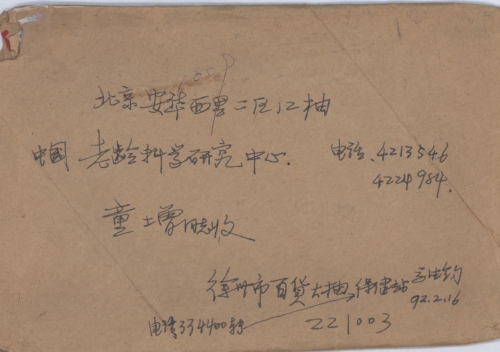 北京安华西里二区12抽
中国老龄科学研究中心. 电话.4213546
4224984.
童增同志收
徐州市百货大抽保健站
92.2.16
电话334400转
221003